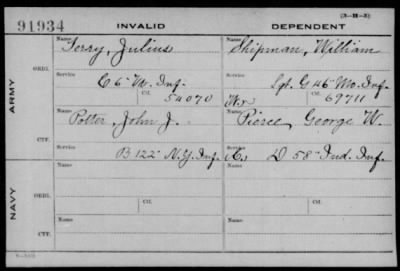 (3-111-3)
91934 INVALID DEPENDENT
Name Name
Terry, Julius Shipman, William
ORIG. Service Service
C 6" Vt. Inf. Sgt. G 46" Mo. Inf.
Ctf. Ctf.
54070 Wx 69711
ARMY
Name Name
Potter, John J. Pierce, George W.
CTF. Service Service
B 122" N.Y. Inf. D 58" Ind. Inf.
Name Name
ORIG. Ctf. Ctf.
NAVY
Name Name
CTF.